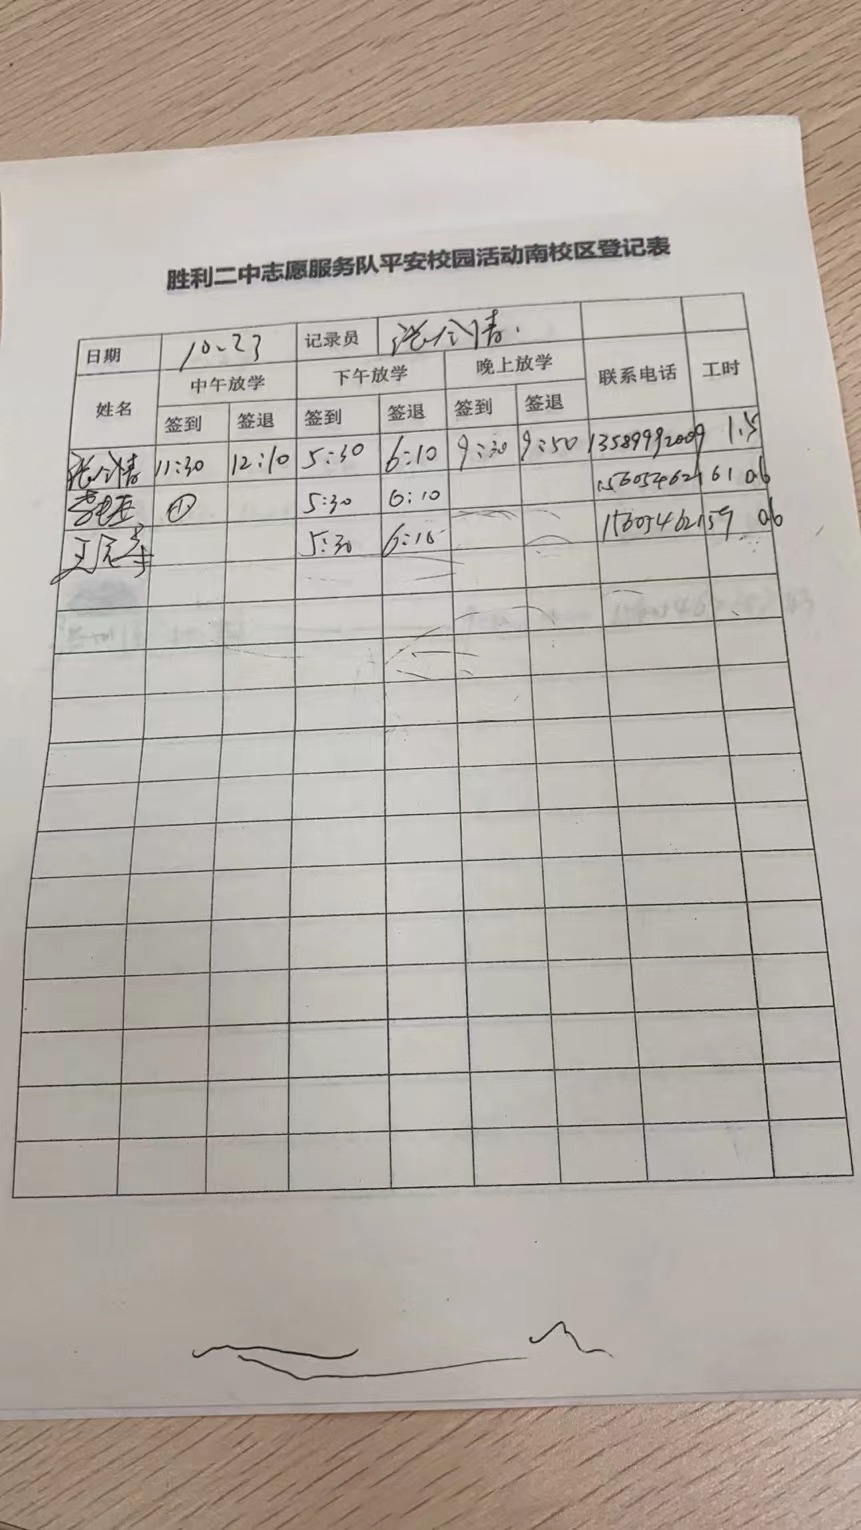 胜利二中志愿服务队平安校园活动南校区登记表
日期 10.23 记录员 张会情
姓名 中午放学 下午放学 晚上放学 联系电话 工时
签到 签退 签到 签退 签到 签退
张会情 11:30 12:10 5:30 6:10 9:30 9:50 13589992009 1.5
5:30 6:10 15605462161 0.6
5:30 6:10 15605462159 0.6